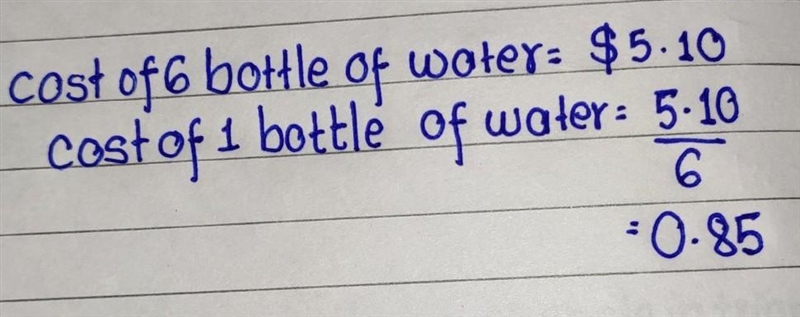 cost of 6 bottle of water = $5.10
cost of 1 bottle of water = 5.10
6
= 0.85